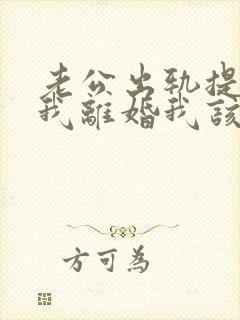 老公出軌提
我離婚我該
方可為